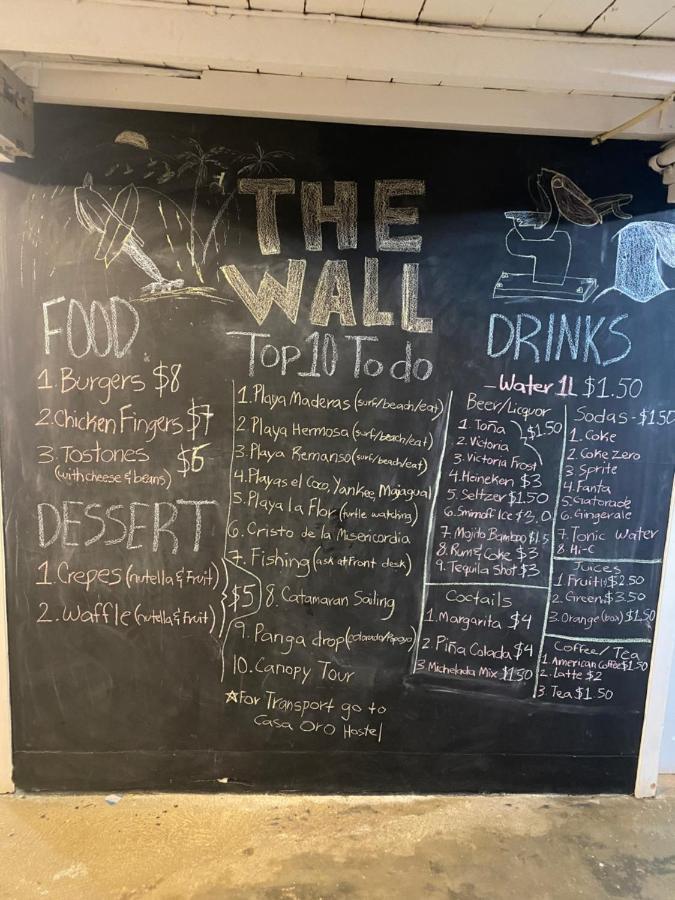 THE
WALL
FOOD
1. Burgers $8
2. Chicken Fingers $7
3. Tostones $6
(with cheese & beans)
DESSERT
1. Crepes (nutella & fruit)
2. Waffle (nutella & fruit)
$5
Top 10 To do
1. Playa Maderas (surf/beach/eat)
2 Playa Hermosa (surf/beach/eat)
3. Playa Remanso (surf/beach/eat)
4. Playas el Coco, Yankee, Majagual
5. Playa la Flor (turtle watching)
6. Cristo de la Misericordia
7. Fishing (ask at front desk)
8. Catamaran Sailing
9. Panga drop (colorado/Popoyo)
10. Canopy Tour
☆For Transport go to
Casa Oro Hostel
DRINKS
- Water 1L $1.50
Beer/Liquor
1. Toña
2. Victoria
3. Victoria Frost
$1.50
4. Heineken $3
5. Seltzer $1.50
6. Smirnoff Ice $3.0
7. Mojito Bamboo $1.5
8. Rum & Coke $3
9. Tequila Shot $3
Coctails
1. Margarita $4
2. Piña Colada $4
3 Michelada Mix $1.50
Sodas - $1.50
1. Coke
2. Coke Zero
3 Sprite
4. Fanta
5. Gatorade
6. Gingerale
7. Tonic water
8. Hi-C
Juices
1 Fruit $2.50
2. Green $3.50
3. Orange (box) $1.50
Coffee/Tea
1. American Coffee $1.50
2. Latte $2
3. Tea $1.50